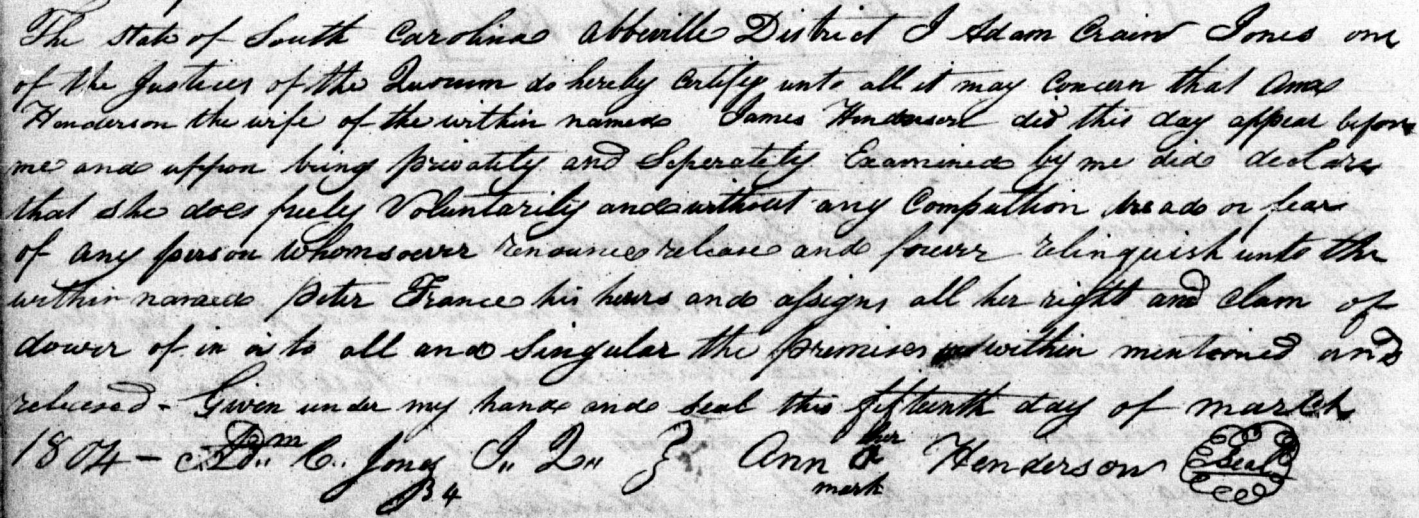 The state of South Carolina Abbeville District I Adam Crain Jones one
of the Justices of the Quorum do hereby Certify unto all it may Concern that Ann
Henderson the wife of the within named James Henderson did this day appear before
me and uppon being privatily and Seperatily Examined by me did declare
that she does freely Voluntarily and without any Compultion dread or fear
of any person whomsoever renounce release and forever relinquish unto the
within named Peter France his heirs and assigns all her right and Clam of
dower of in or to all and Singular the premises within mentioned and
released - Given under my hand and seal this fifteenth day of march
1804 - Adm C. Jones J,, Q,, } Ann her Henderson Seal
mark